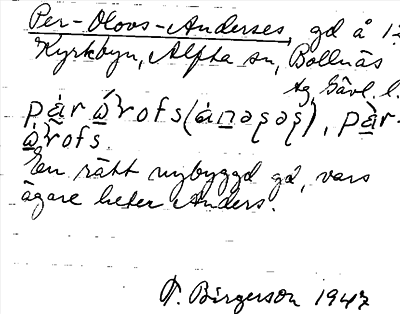 Per-Olovs-Anderses, gd å 12
Kyrkbyn, Alfta sn, Bollnäs
tg, Gävl. l.
pàr ó̀rofs (ánəʂəʂ), pàr-
òrofs.
En rätt nybyggd gd, vars
ägare heter Anders.
T. Birgerson 1947